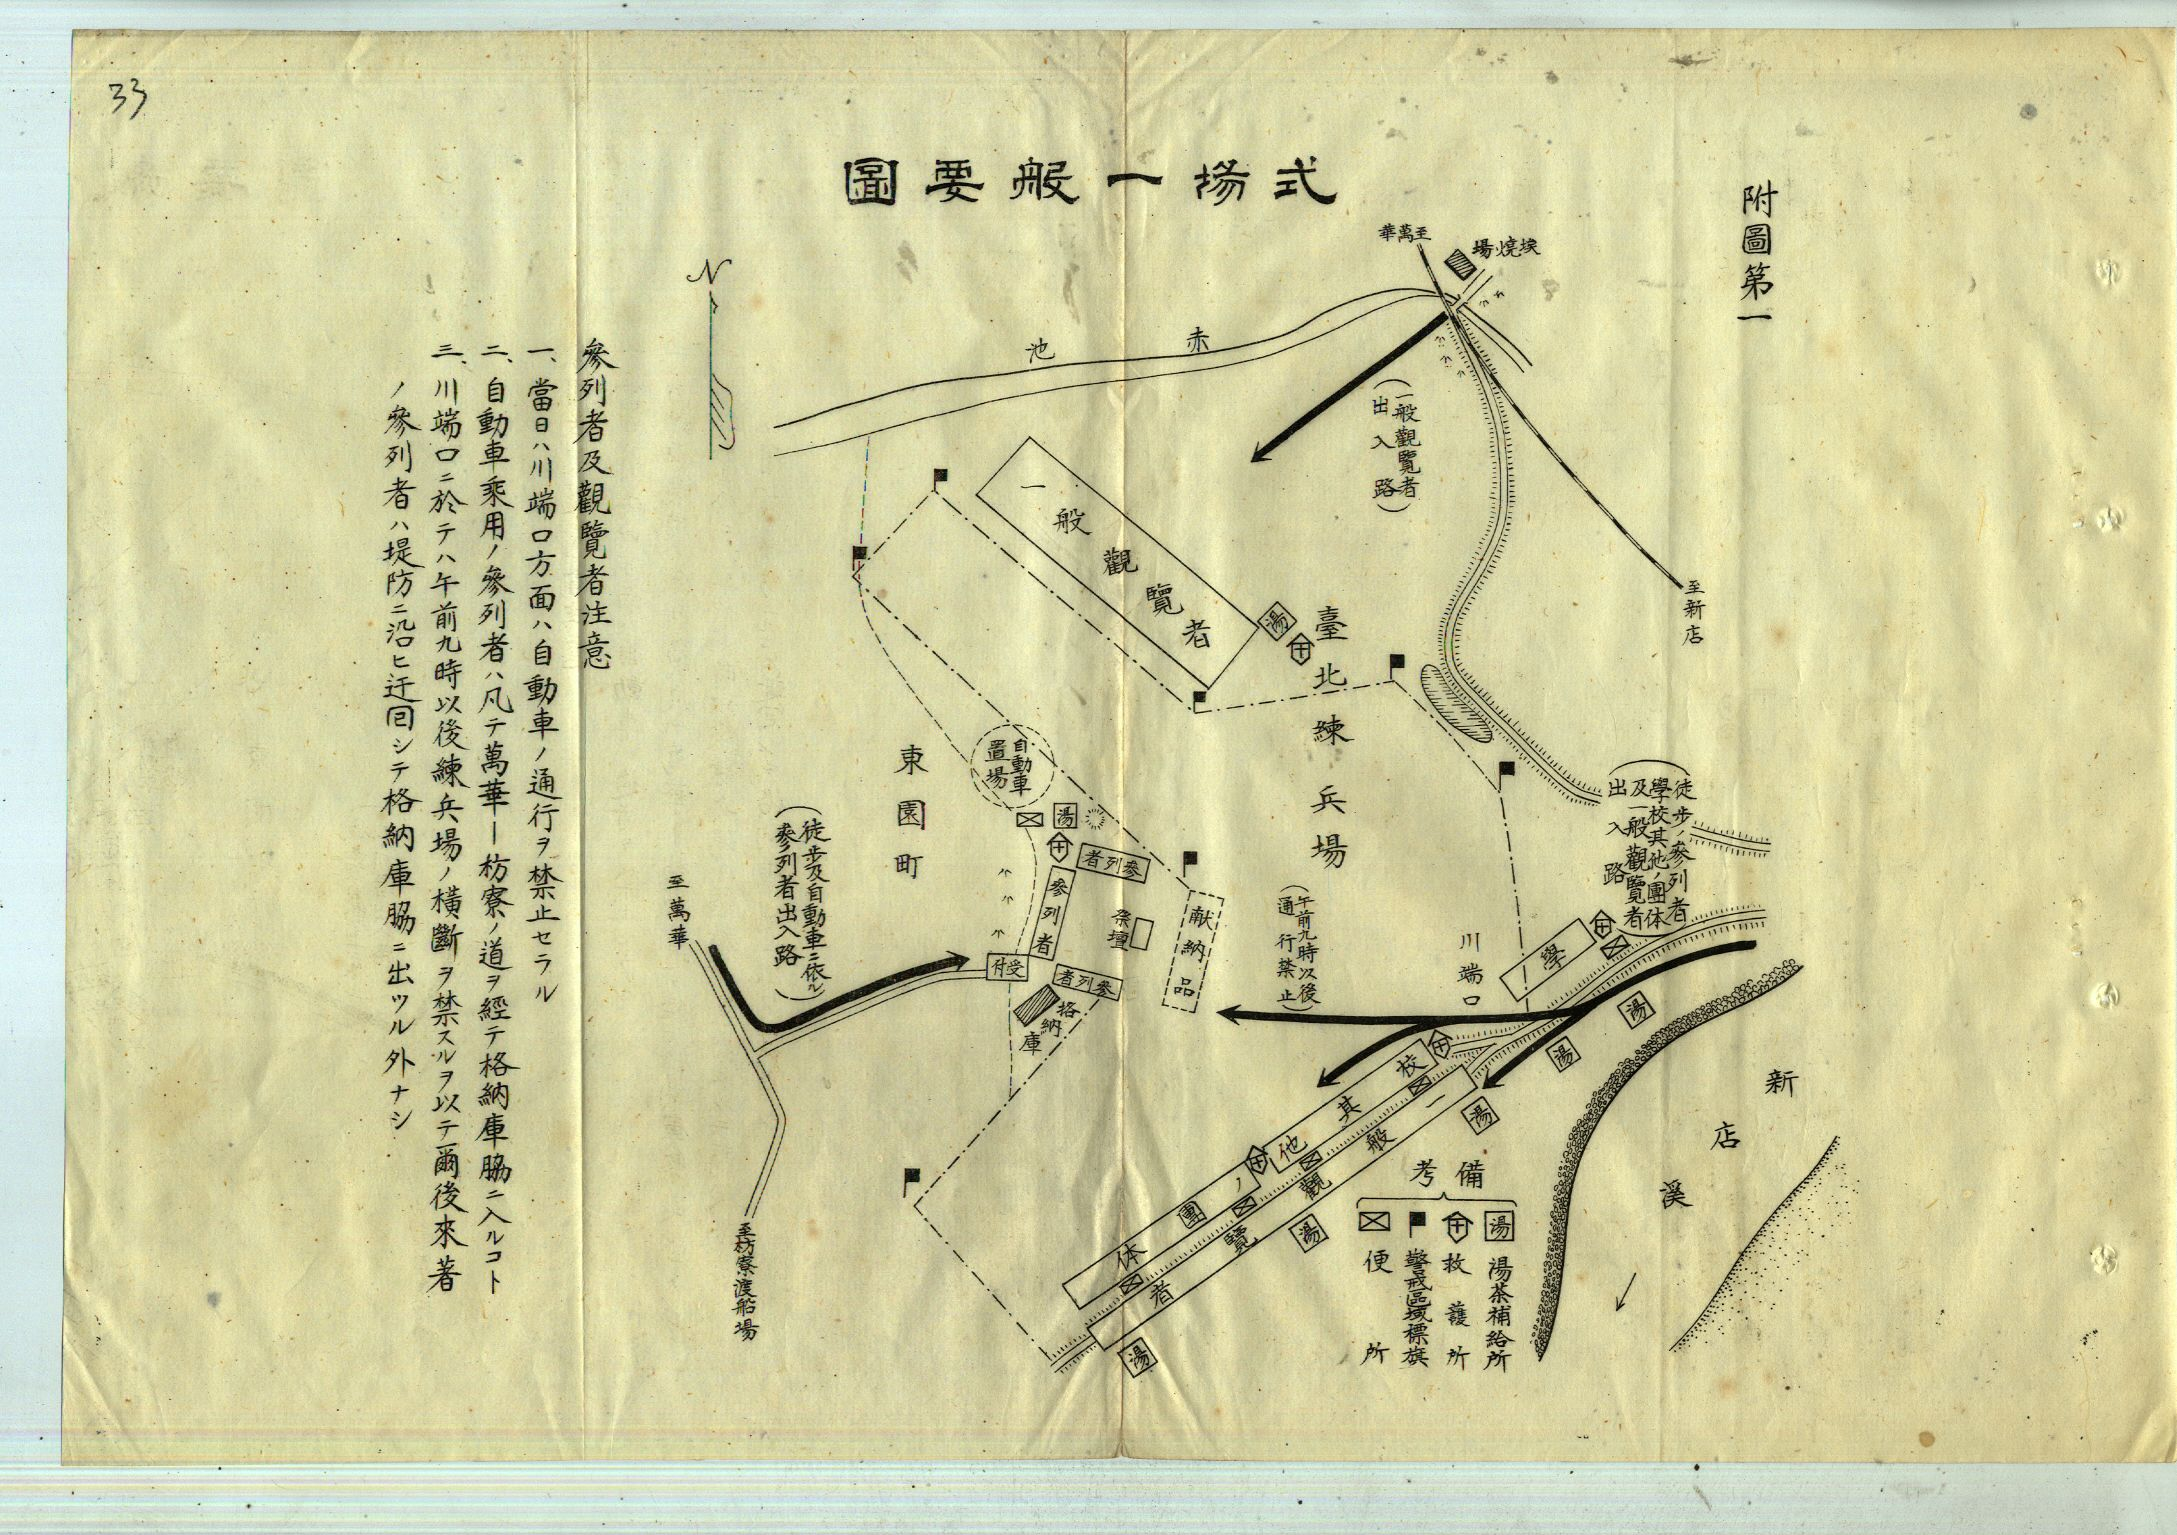 33
附圖第一
式場一般要圖
N
至萬華
埃燒場
赤池
(一般觀覽者
出入路)
至新店
一般觀覽者
湯
臺北練兵場
徒步ノ參列者
學校其他ノ團体
及一般觀覽者
出入路
東園町
自動車
置場
湯
參列者
參列者
參列者
祭壇
献納品
受付
格納庫
(徒步及自動車ニ依ル
參列者出入路)
至萬華
至枋寮渡船場
(午前九時以後
通行禁止)
川端口
學校其他ノ團体
一般觀覽者
湯
湯
湯
湯
湯
新店溪
備考
湯 湯茶補給所
救護所
警戒區域標旗
便所
參列者及觀覽者注意
一、當日ハ川端口方面ハ自動車ノ通行ヲ禁止セラル
二、自動車乘用ノ參列者ハ凡テ萬華ー枋寮ノ道ヲ經テ格納庫脇ニ入ルコト
三、川端口ニ於テハ午前九時以後練兵場ノ橫斷ヲ禁スルヲ以テ爾後來著
ノ參列者ハ堤防ニ沿ヒ迂囘シテ格納庫脇ニ出ツル外ナシ